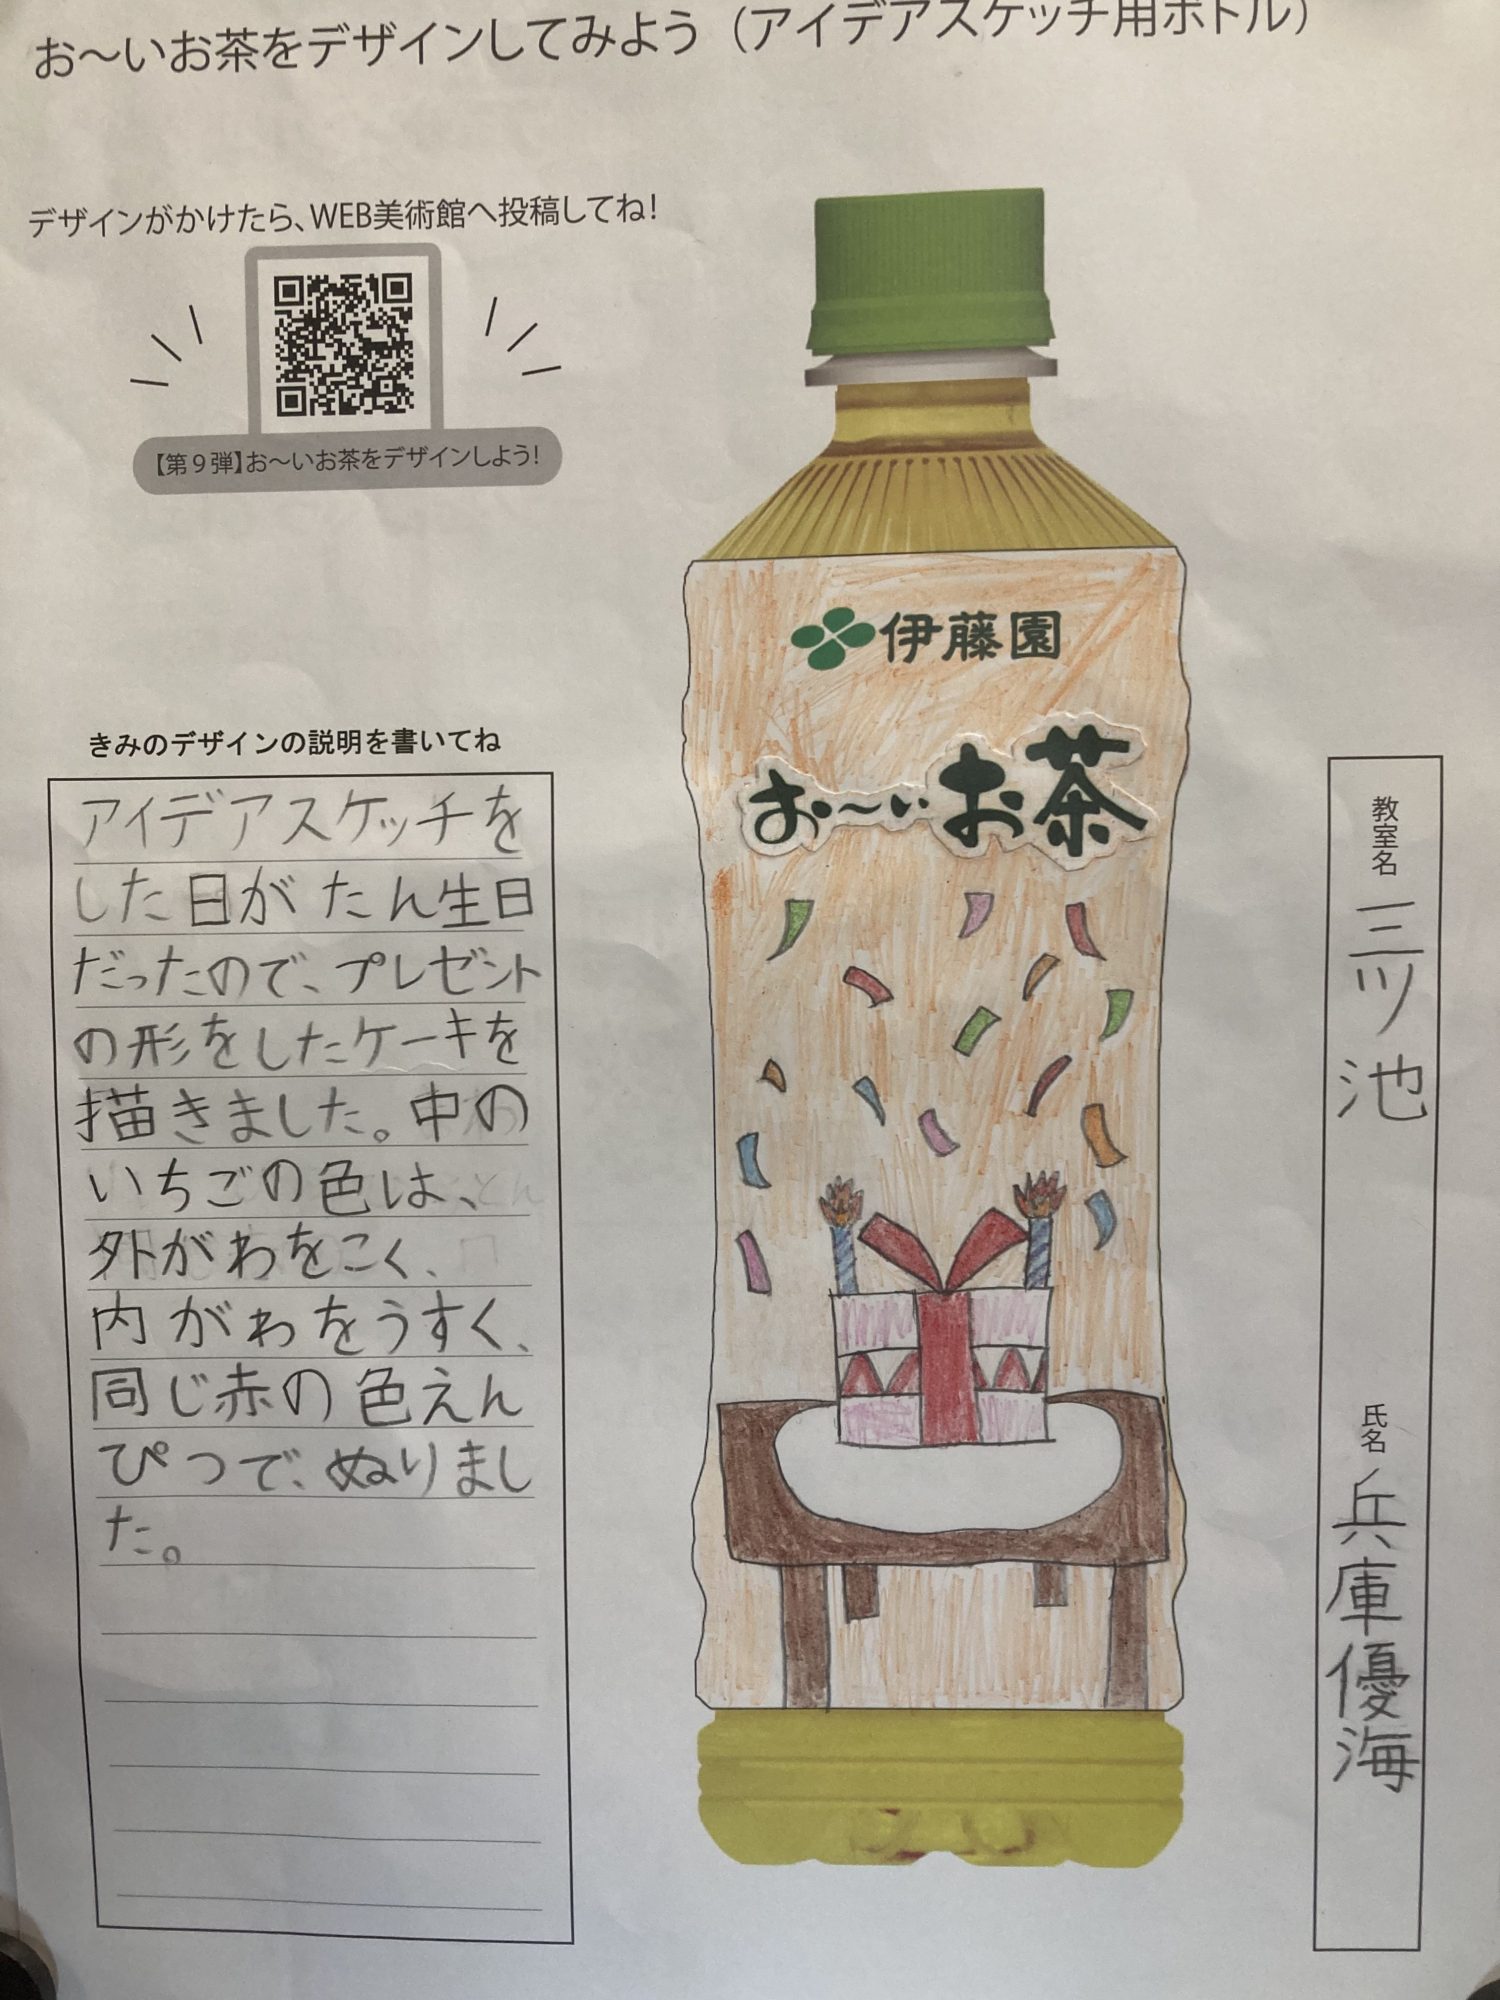 お〜いお茶をデザインしてみよう（アイデアスケッチ用ボトル）
デザインがかけたら、WEB美術館へ投稿してね!
【第９弾】お〜いお茶をデザインしよう!
伊藤園
お〜いお茶
きみのデザインの説明を書いてね
アイデアスケッチを
した日がたん生日
だったので、プレゼント
の形をしたケーキを
描きました。中の
いちごの色は、
外がわをこく、
内がわをうすく、
同じ赤の色えん
ぴつで、ぬりまし
た。
教室名 三ツ池
氏名 兵庫優海